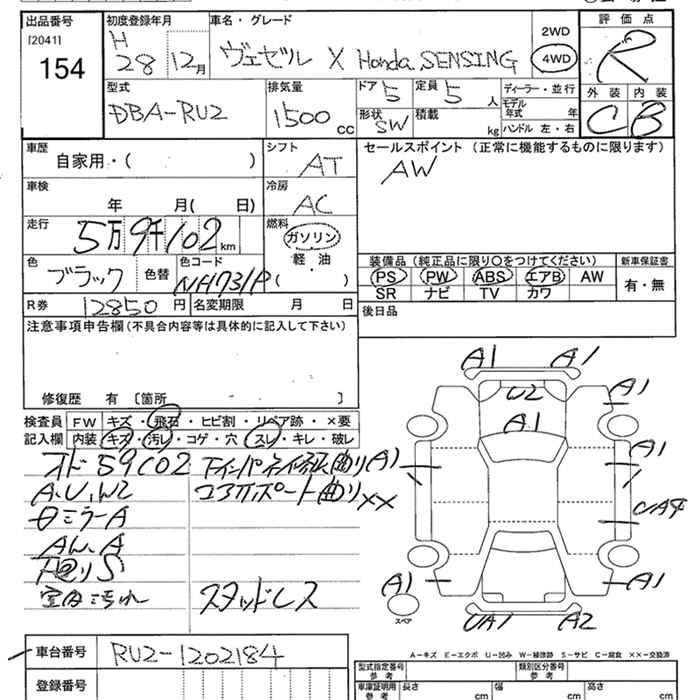 出品番号
[20411]
154
初度登録年月
H
28 12月
車名・グレード
ヴェゼル X Honda SENSING
2WD
4WD
評価点
R
型式
DBA-RU2
排気量
1500 cc
ドア 5
形状 SW
定員 5 人
積載 kg
ディーラー・並行
モデル年式 年
ハンドル 左・右
外装 内装
C B
車歴
自家用・( )
シフト
AT
セールスポイント (正常に機能するものに限ります)
AW
車検
年 月( 日)
冷房
AC
走行
5万9千102 km
燃料
ガソリン
軽・油
( )
色
ブラック
色替
色コード
NH731P
装備品 (純正品に限り○をつけてください)
PS PW ABS エアB AW
SR ナビ TV カワ
新車保証書
有・無
R券 12850 円 名変期限 月 日
後日品
注意事項申告欄(不具合内容等は具体的に記入して下さい)
修復歴 有 〔箇所 〕
検査員記入欄
FW キズ・飛石・ヒビ割・リペア跡・×要
内装 キズ・汚レ・コゲ・穴・スレ・キレ・破レ
オド59102
A.U.W2
ミラーA
AW.A
下回りS
室内汚れ
コアサポート曲り××
スタッドレス
A1 A1
U2
A1
A1
A1
A1
A1
A1
UA1 A2
スペア
A-キズ E-エクボ U-凹み W-補修跡 S-サビ C-腐食 ××-交換済
車台番号 RU2-1202184
登録番号
型式指定番号 参考
類別区分番号 参考
車庫証明用 参考
長さ cm
幅 cm
高さ cm